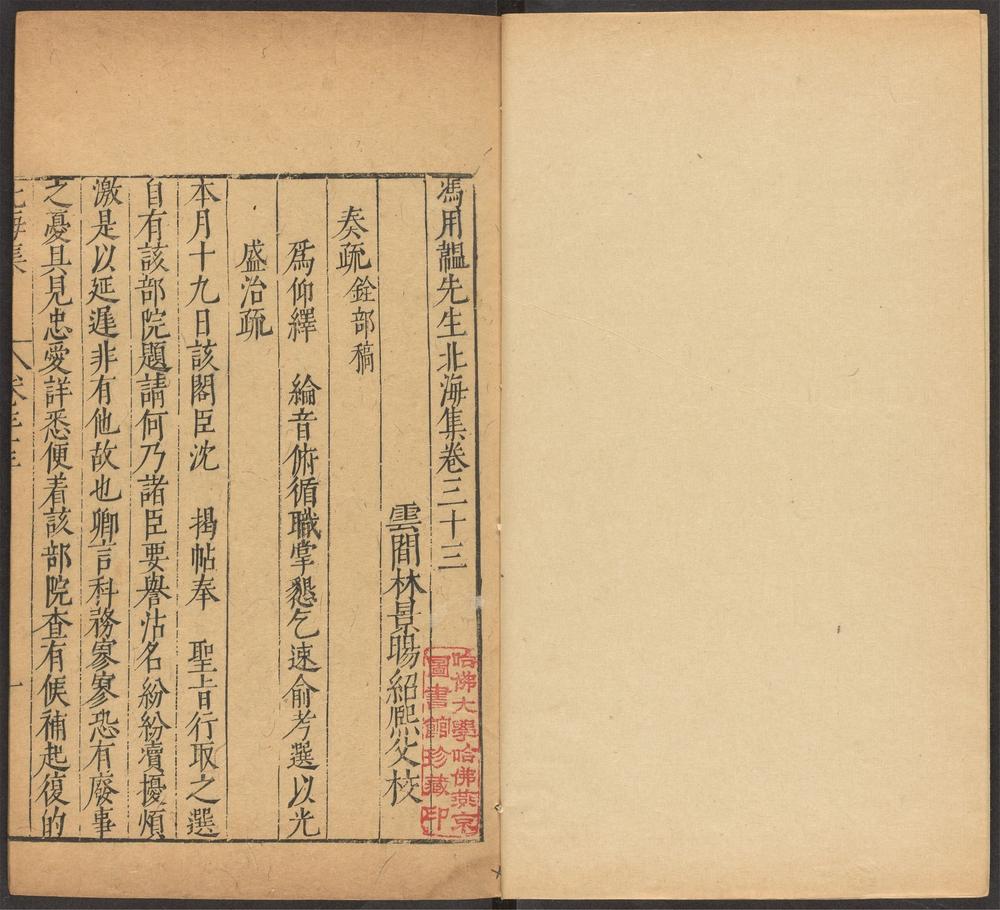 馮用韞先生北海集卷三十三
雲間林景暘紹熙父校
奏疏 銓部稿
爲仰繹 綸音俯循職掌懇乞速俞考選以光
盛治疏
本月十九日該閣臣沈 揭帖奉 聖旨行取之選
自有該部院題請何乃諸臣要譽沽名紛紛瀆擾煩
激是以延遲非有他故也卿言科務寥寥恐有廢事
之憂具見忠愛詳悉便着該部院查有候補起復的
北海集 卷三十三 一
哈佛大學哈佛燕京
圖書館珍藏印